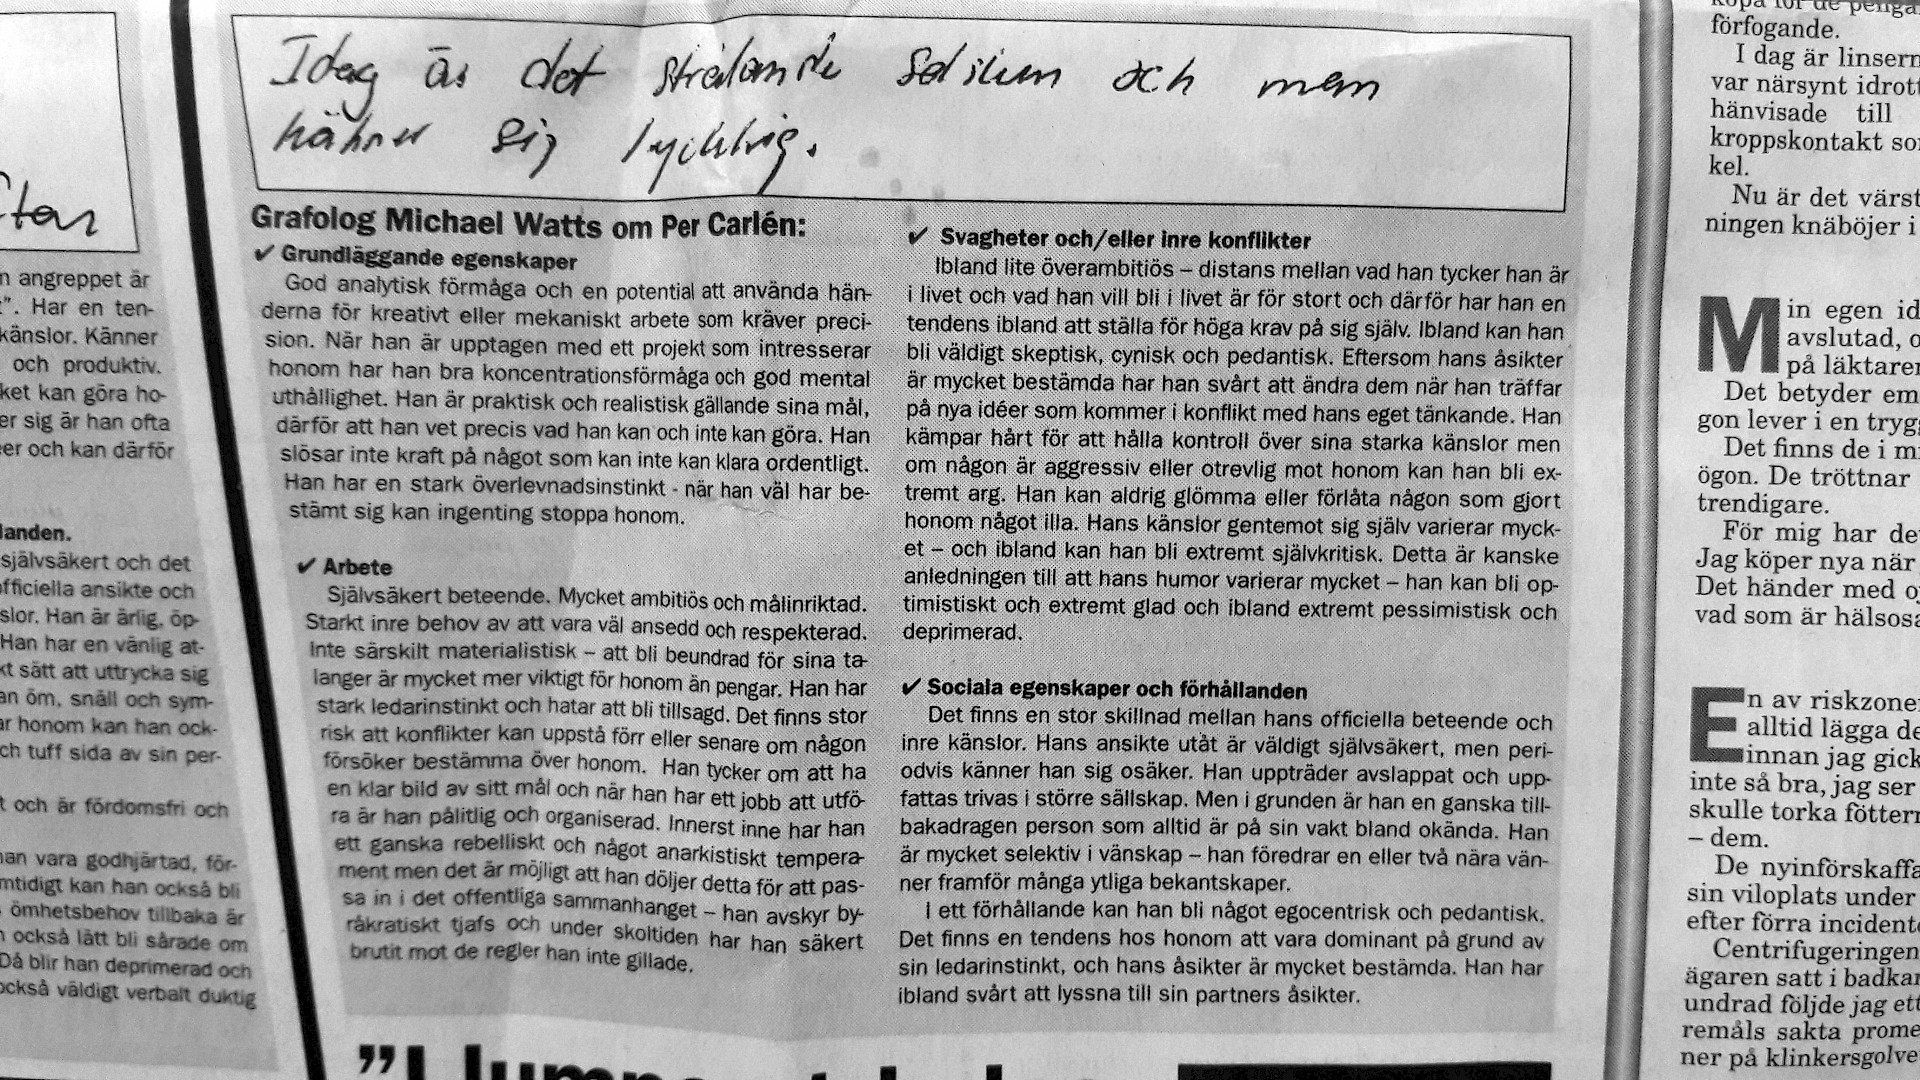 ftar
n angreppet är
t". Har en ten-
känslor. Känner
och produktiv.
ket kan göra ho-
er sig är han ofta
er och kan därför
landen.
självsäkert och det
officiella ansikte och
slor. Han är ärlig, öp-
Han har en vänlig at-
kt sätt att uttrycka sig
an öm, snäll och sym-
ar honom kan han ock-
ch tuff sida av sin per-
t och är fördomsfri och
nan vara godhjärtad, för-
mtidigt kan han också bli
ömhetsbehov tillbaka är
n också lätt bli sårade om
Då blir han deprimerad och
också väldigt verbalt duktig
Idag är det strålande solsken och man
känner sig lycklig.
Grafolog Michael Watts om Per Carlén:
✔ Grundläggande egenskaper
God analytisk förmåga och en potential att använda hän-
derna för kreativt eller mekaniskt arbete som kräver preci-
sion. När han är upptagen med ett projekt som intresserar
honom har han bra koncentrationsförmåga och god mental
uthållighet. Han är praktisk och realistisk gällande sina mål,
därför att han vet precis vad han kan och inte kan göra. Han
slösar inte kraft på något som kan inte kan klara ordentligt.
Han har en stark överlevnadsinstinkt - när han väl har be-
stämt sig kan ingenting stoppa honom.
✔ Arbete
Självsäkert beteende. Mycket ambitiös och målinriktad.
Starkt inre behov av att vara väl ansedd och respekterad.
Inte särskilt materialistisk – att bli beundrad för sina ta-
langer är mycket mer viktigt för honom än pengar. Han har
stark ledarinstinkt och hatar att bli tillsagd. Det finns stor
risk att konflikter kan uppstå förr eller senare om någon
försöker bestämma över honom. Han tycker om att ha
en klar bild av sitt mål och när han har ett jobb att utfö-
ra är han pålitlig och organiserad. Innerst inne har han
ett ganska rebelliskt och något anarkistiskt tempera-
ment men det är möjligt att han döljer detta för att pas-
sa in i det offentliga sammanhanget – han avskyr by-
råkratiskt tjafs och under skoltiden har han säkert
brutit mot de regler han inte gillade.
✔ Svagheter och/eller inre konflikter
Ibland lite överambitiös – distans mellan vad han tycker han är
i livet och vad han vill bli i livet är för stort och därför har han en
tendens ibland att ställa för höga krav på sig själv. Ibland kan han
bli väldigt skeptisk, cynisk och pedantisk. Eftersom hans åsikter
är mycket bestämda har han svårt att ändra dem när han träffar
på nya idéer som kommer i konflikt med hans eget tänkande. Han
kämpar hårt för att hålla kontroll över sina starka känslor men
om någon är aggressiv eller otrevlig mot honom kan han bli ex-
tremt arg. Han kan aldrig glömma eller förlåta någon som gjort
honom något illa. Hans känslor gentemot sig själv varierar myck-
et – och ibland kan han bli extremt självkritisk. Detta är kanske
anledningen till att hans humor varierar mycket – han kan bli op-
timistiskt och extremt glad och ibland extremt pessimistisk och
deprimerad.
✔ Sociala egenskaper och förhållanden
Det finns en stor skillnad mellan hans officiella beteende och
inre känslor. Hans ansikte utåt är väldigt självsäkert, men peri-
odvis känner han sig osäker. Han uppträder avslappat och upp-
fattas trivas i större sällskap. Men i grunden är han en ganska till-
bakadragen person som alltid är på sin vakt bland okända. Han
är mycket selektiv i vänskap – han föredrar en eller två nära vän-
ner framför många ytliga bekantskaper.
I ett förhållande kan han bli något egocentrisk och pedantisk.
Det finns en tendens hos honom att vara dominant på grund av
sin ledarinstinkt, och hans åsikter är mycket bestämda. Han har
ibland svårt att lyssna till sin partners åsikter.
köpa för de penga
förfogande.
I dag är linsern
var närsynt idrott
hänvisade till
kroppskontakt so
kel.
Nu är det värst
ningen knäböjer i
Min egen id
avslutad, o
på läktaren
Det betyder em
gon lever i en trygg
Det finns de i mi
ögon. De tröttnar
trendigare.
För mig har de
Jag köper nya när
Det händer med oj
vad som är hälsosa
En av riskzoner
alltid lägga de
innan jag gick
inte så bra, jag ser
skulle torka fötterr
– dem.
De nyinförskaffa
sin viloplats under
efter förra incidente
Centrifugeringen
ägaren satt i badkar
undrad följde jag ett
remåls sakta prome
ner på klinkersgolve